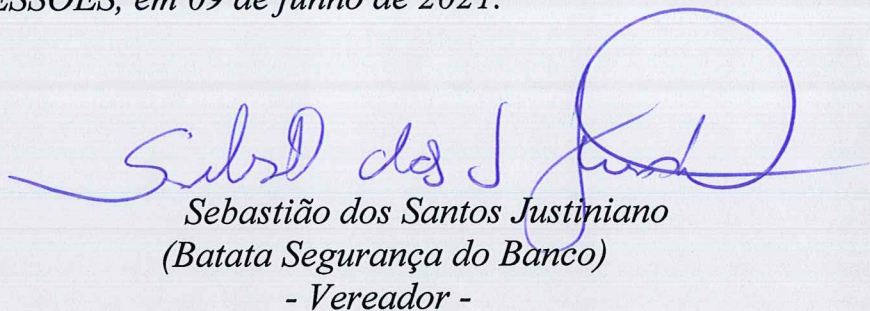 ESSÕES, em 09 de junho de 2021.
Sebastião dos Santos Justiniano
(Batata Segurança do Banco)
- Vereador -